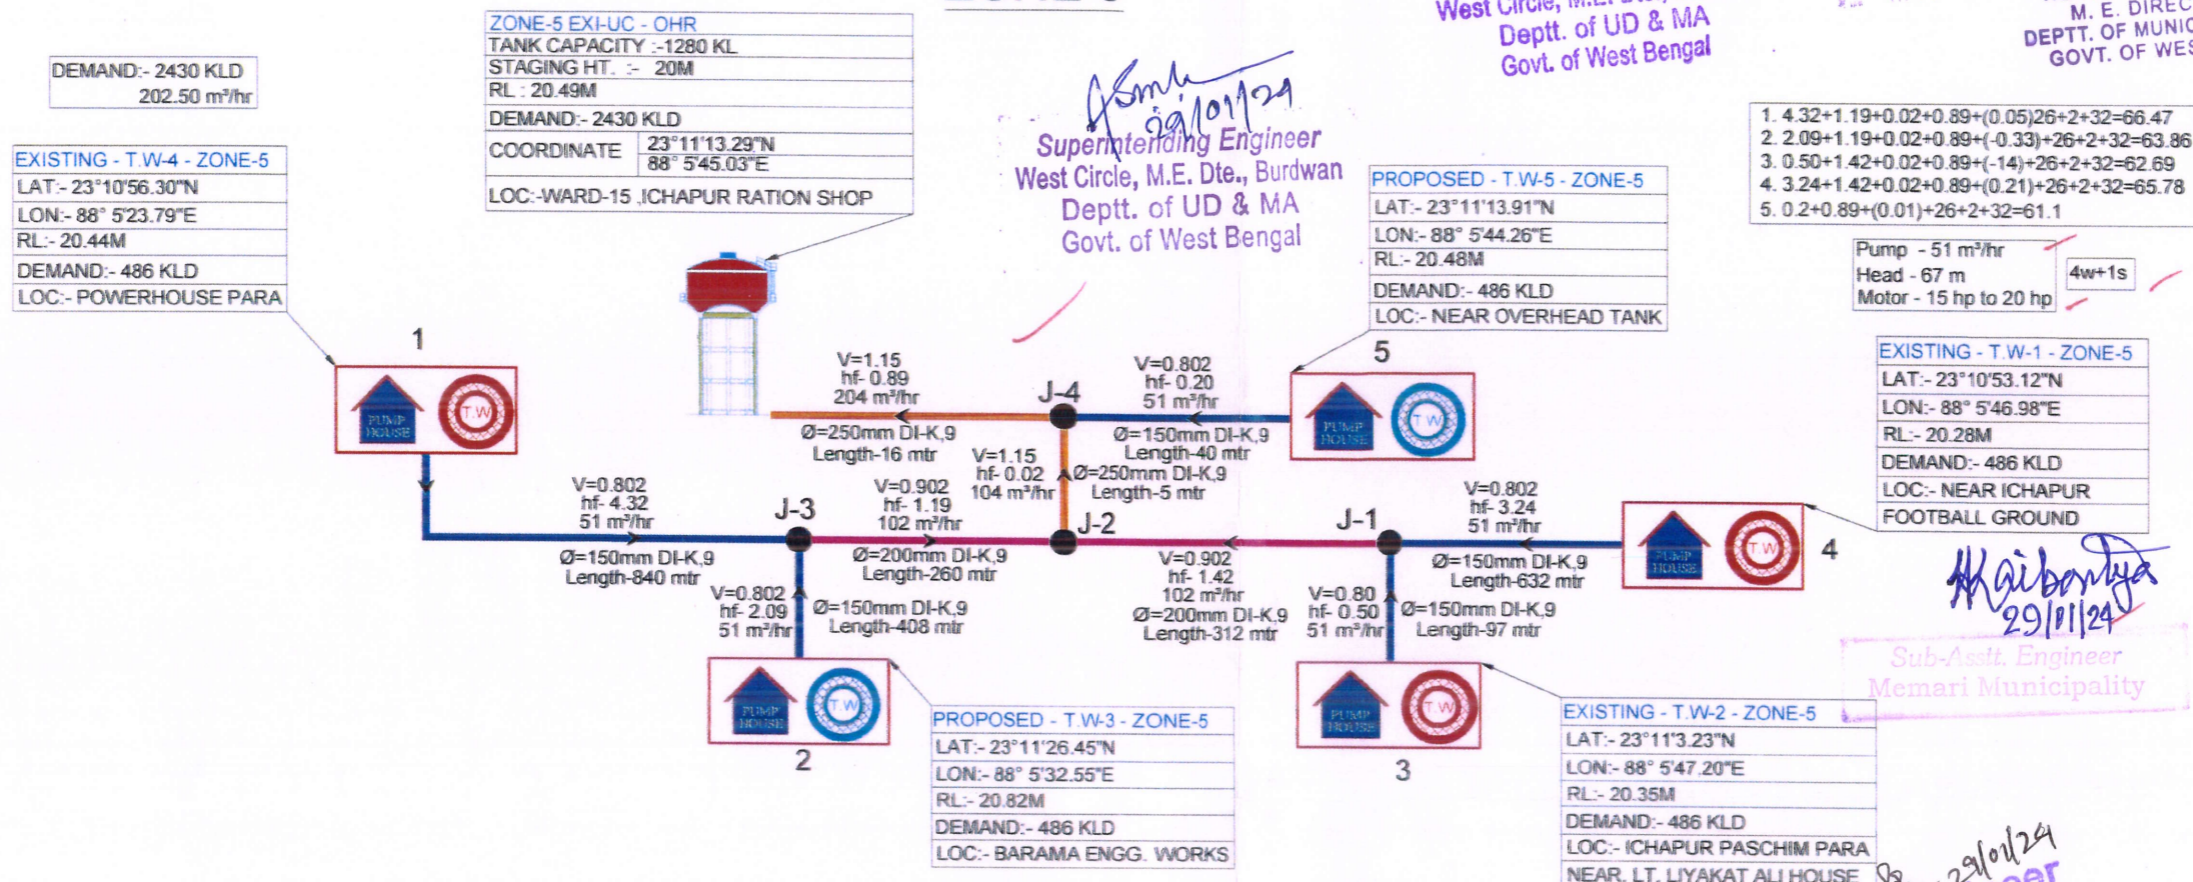 DEMAND:- 2430 KLD
202.50 m³/hr
ZONE-5 EXI-UC - OHR
TANK CAPACITY :-1280 KL
STAGING HT. :- 20M
RL : 20.49M
DEMAND:- 2430 KLD
COORDINATE
23°11'13.29"N
88° 5'45.03"E
LOC:-WARD-15 ,ICHAPUR RATION SHOP
29/01/24
Superintending Engineer
West Circle, M.E. Dte., Burdwan
Deptt. of UD & MA
Govt. of West Bengal
West Circle, M.E.
Deptt. of UD & MA
Govt. of West Bengal
M. E. DIREC
DEPTT. OF MUNIC
GOVT. OF WES
1. 4.32+1.19+0.02+0.89+(0.05)26+2+32=66.47
2. 2.09+1.19+0.02+0.89+(-0.33)+26+2+32=63.86
3. 0.50+1.42+0.02+0.89+(-14)+26+2+32=62.69
4. 3.24+1.42+0.02+0.89+(0.21)+26+2+32=65.78
5. 0.2+0.89+(0.01)+26+2+32=61.1
Pump - 51 m³/hr
Head - 67 m
Motor - 15 hp to 20 hp
4w+1s
EXISTING - T.W-4 - ZONE-5
LAT:- 23°10'56.30"N
LON:- 88° 5'23.79"E
RL:- 20.44M
DEMAND:- 486 KLD
LOC:- POWERHOUSE PARA
PROPOSED - T.W-5 - ZONE-5
LAT:- 23°11'13.91"N
LON:- 88° 5'44.26"E
RL:- 20.48M
DEMAND:- 486 KLD
LOC:- NEAR OVERHEAD TANK
EXISTING - T.W-1 - ZONE-5
LAT:- 23°10'53.12"N
LON:- 88° 5'46.98"E
RL:- 20.28M
DEMAND:- 486 KLD
LOC:- NEAR ICHAPUR
FOOTBALL GROUND
1
PUMP
HOUSE
T.W
V=1.15
hf- 0.89
204 m³/hr
Ø=250mm DI-K,9
Length-16 mtr
J-4
V=0.802
hf- 0.20
51 m³/hr
Ø=150mm DI-K,9
Length-40 mtr
5
PUMP
HOUSE
T.W
V=1.15
hf- 0.02
104 m³/hr
Ø=250mm DI-K,9
Length-5 mtr
V=0.802
hf- 4.32
51 m³/hr
Ø=150mm DI-K,9
Length-840 mtr
J-3
V=0.902
hf- 1.19
102 m³/hr
Ø=200mm DI-K,9
Length-260 mtr
J-2
V=0.902
hf- 1.42
102 m³/hr
Ø=200mm DI-K,9
Length-312 mtr
J-1
V=0.802
hf- 3.24
51 m³/hr
Ø=150mm DI-K,9
Length-632 mtr
PUMP
HOUSE
T.W
4
V=0.802
hf- 2.09
51 m³/hr
Ø=150mm DI-K,9
Length-408 mtr
V=0.80
hf- 0.50
51 m³/hr
Ø=150mm DI-K,9
Length-97 mtr
29/01/24
Sub-Asstt. Engineer
Memari Municipality
PUMP
HOUSE
T.W
2
PUMP
HOUSE
T.W
3
PROPOSED - T.W-3 - ZONE-5
LAT:- 23°11'26.45"N
LON:- 88° 5'32.55"E
RL:- 20.82M
DEMAND:- 486 KLD
LOC:- BARAMA ENGG. WORKS
EXISTING - T.W-2 - ZONE-5
LAT:- 23°11'3.23"N
LON:- 88° 5'47.20"E
RL:- 20.35M
DEMAND:- 486 KLD
LOC:- ICHAPUR PASCHIM PARA
NEAR, LT. LIYAKAT ALI HOUSE
29/01/24